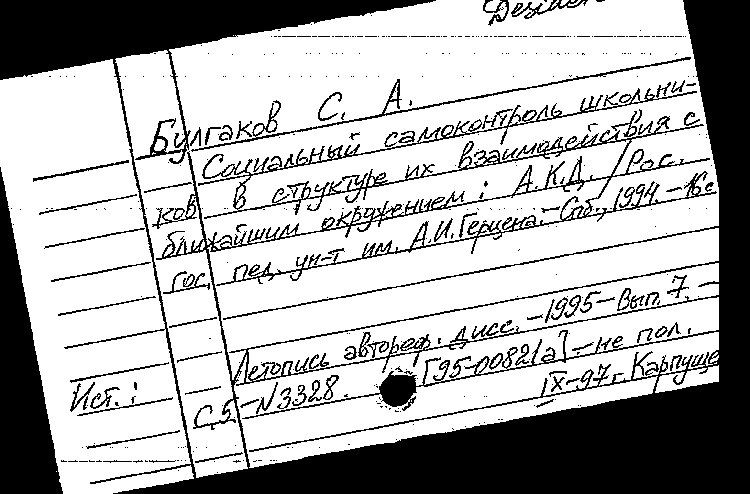 Desider
Булгаков С. А.
Социальный самоконтроль школьни-
ков в структуре их взаимодействия с
ближайшим окружением: А.К.Д. / Рос.
гос. пед. ун-т им. А.И.Герцена.-Спб., 1994.-16с
Летопись автореф. дисс. -1995-Вып. 7. -
Ист.: С.5.-N3328. [95-00821а] -не пол.
IX-97г. Карпуще